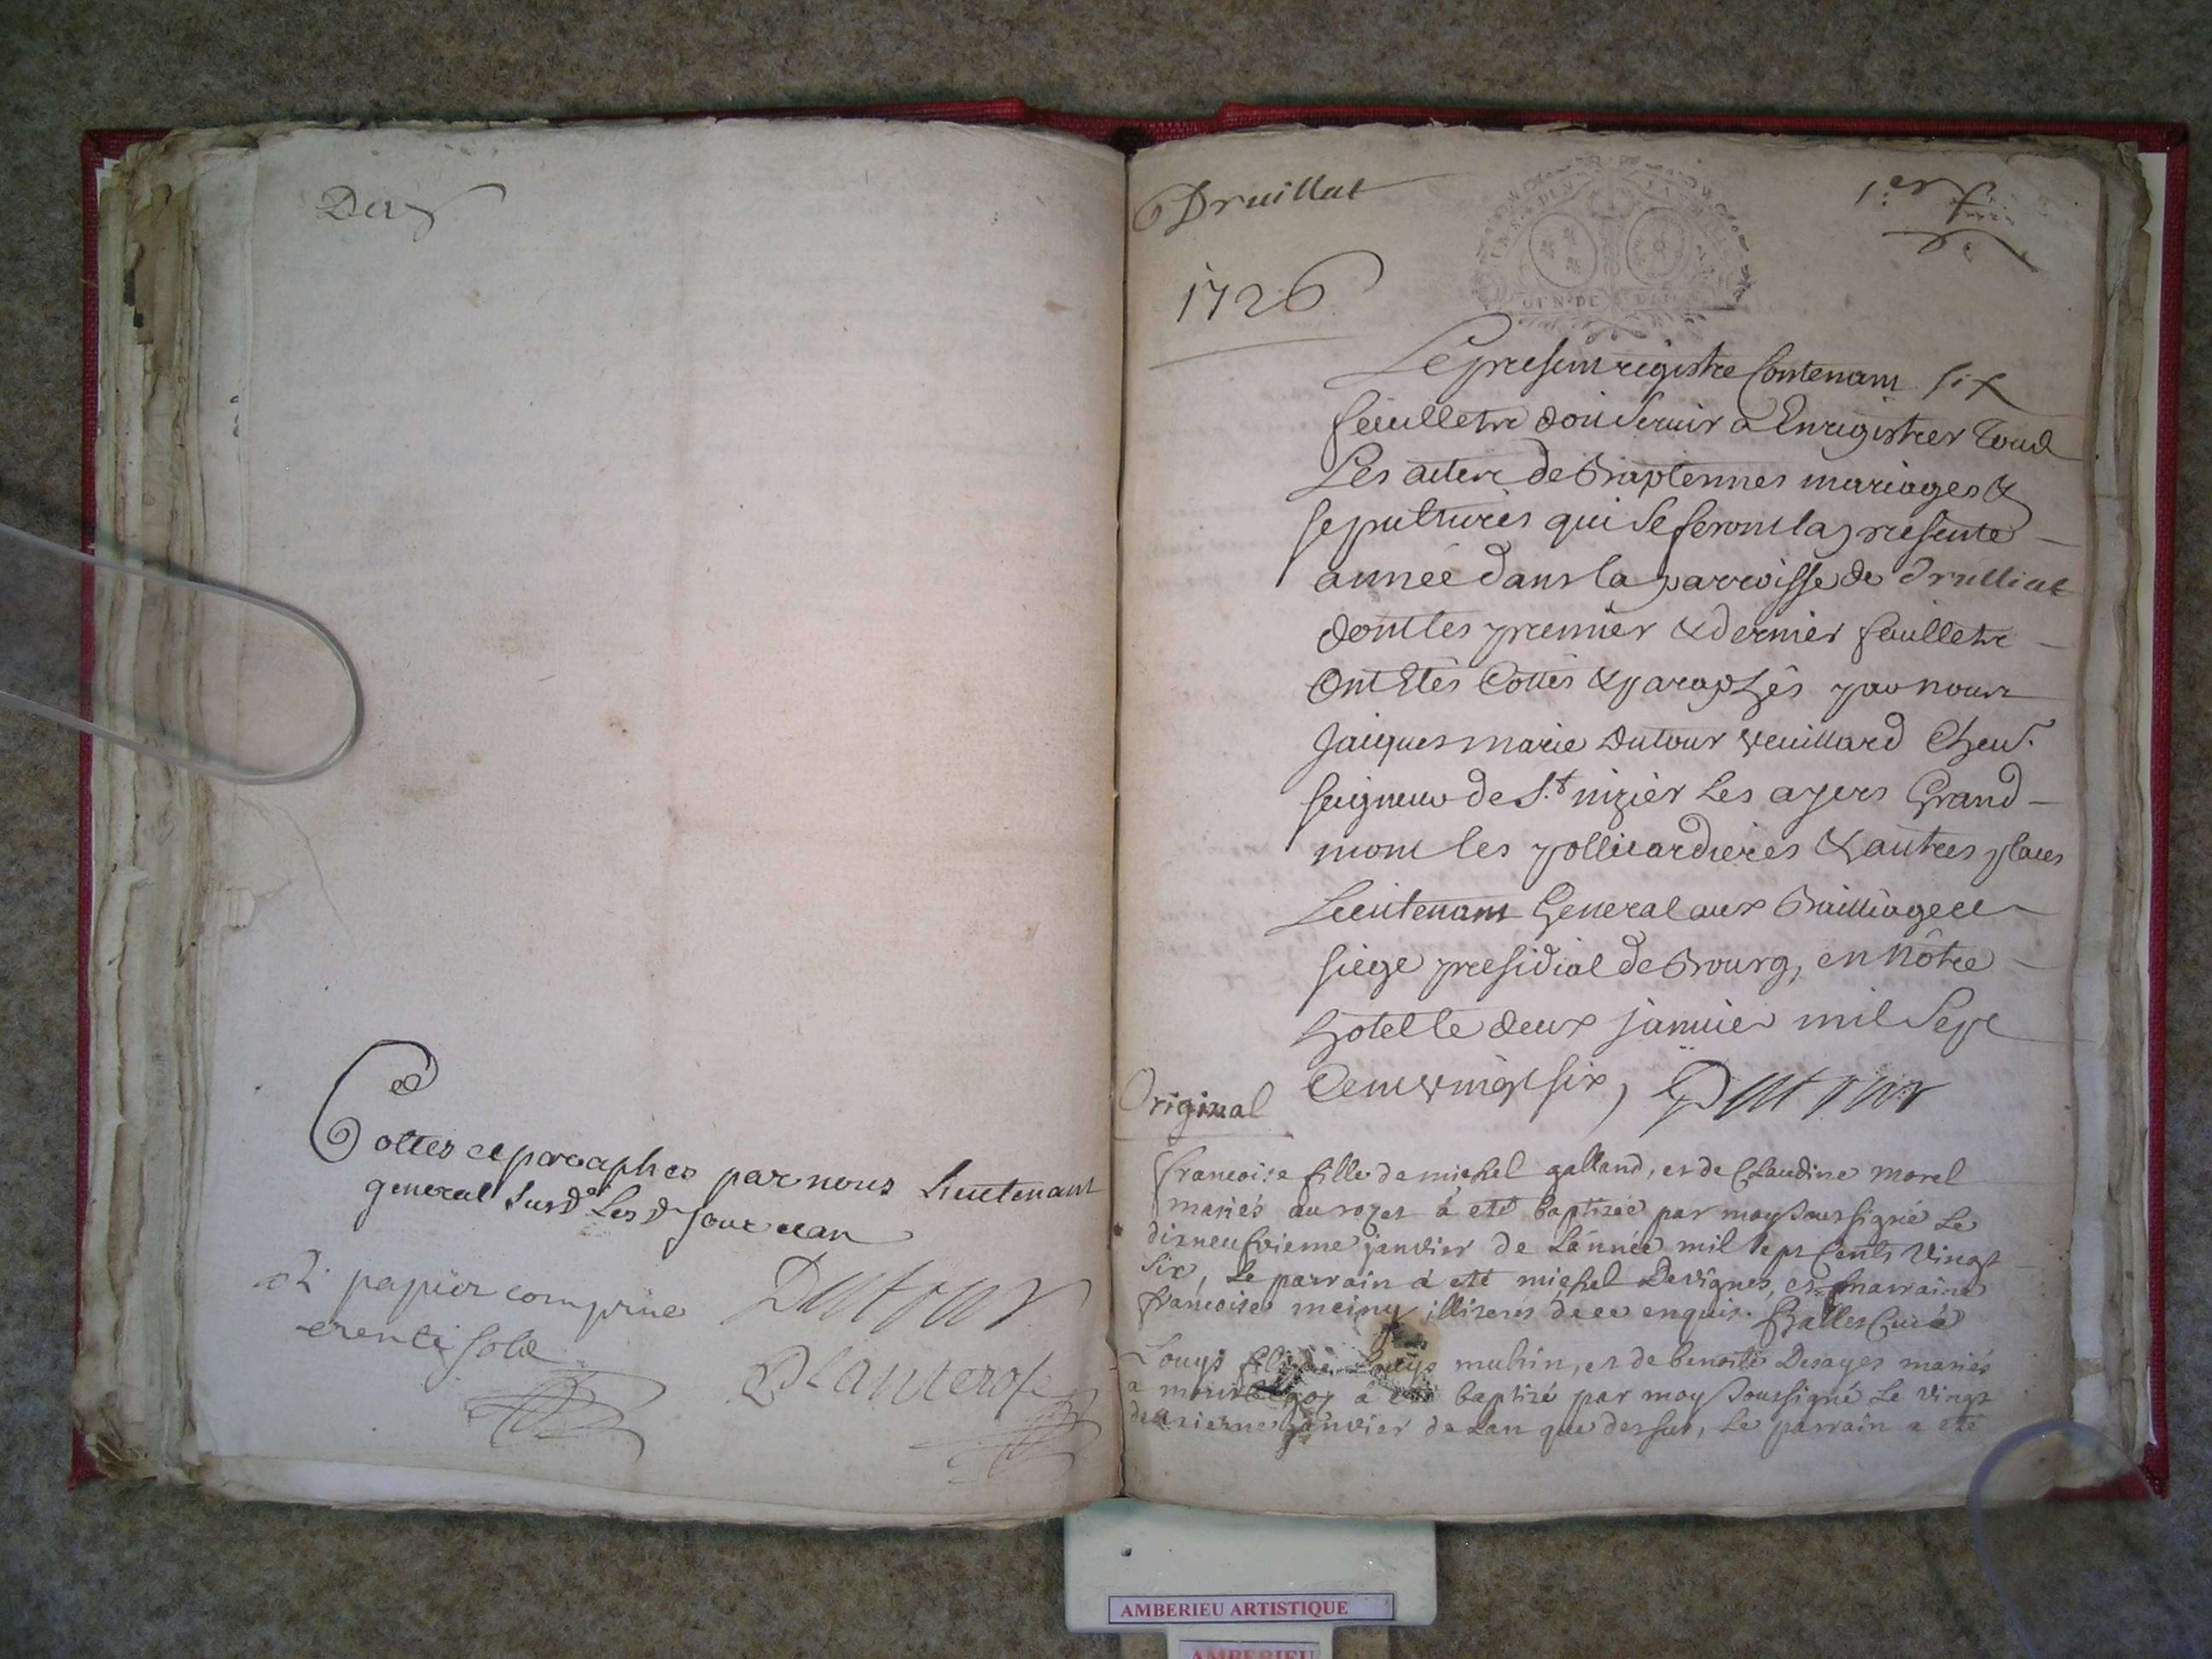 Cottes et paraphes par nous Lieutenant
general Susd. Les d. jour et an
papier comprins
trente sols
Dutour
Planterose
Druillat
1er f
1726
Le present registre Contenant six
feuillets doit servir a Enregistrer Tous
Les actes de Baptemes mariages &
sepultures qui se feront la presente
année dans la parroisse de Drulliat
dont les premier & dernier feuillets
Ont Etés Cottés & paraphés par nous
Jacques marie Dutour Veuillard Chevr.
seigneur de St. nizier Les ayers Grand-
mont les pollicardieres & autres places
Lieutenant General aux Bailliage et
siege presidial de Bourg, en Nôtre
hotel le deux janvier mil Sept
Cent vingt six, Dutour
Original
francoise fille de michel galland, et de Claudine morel
mariés au rozet à eté baptizée par moy soussigné Le
dixneufvieme janvier de Lannée mil sept Cents Vingt
six, Le parrain à eté michel Devignes, et marraine
francoise meiny illiterés de ce enquis. Challes Curé
Louys fils de Louys muhin, et de benoite Desayes mariés
a à eté baptizé par moy soussigné Le vingt
deuxieme janvier de Lan que dessus, Le parrain a eté
AMBERIEU ARTISTIQUE
AMBERIEU